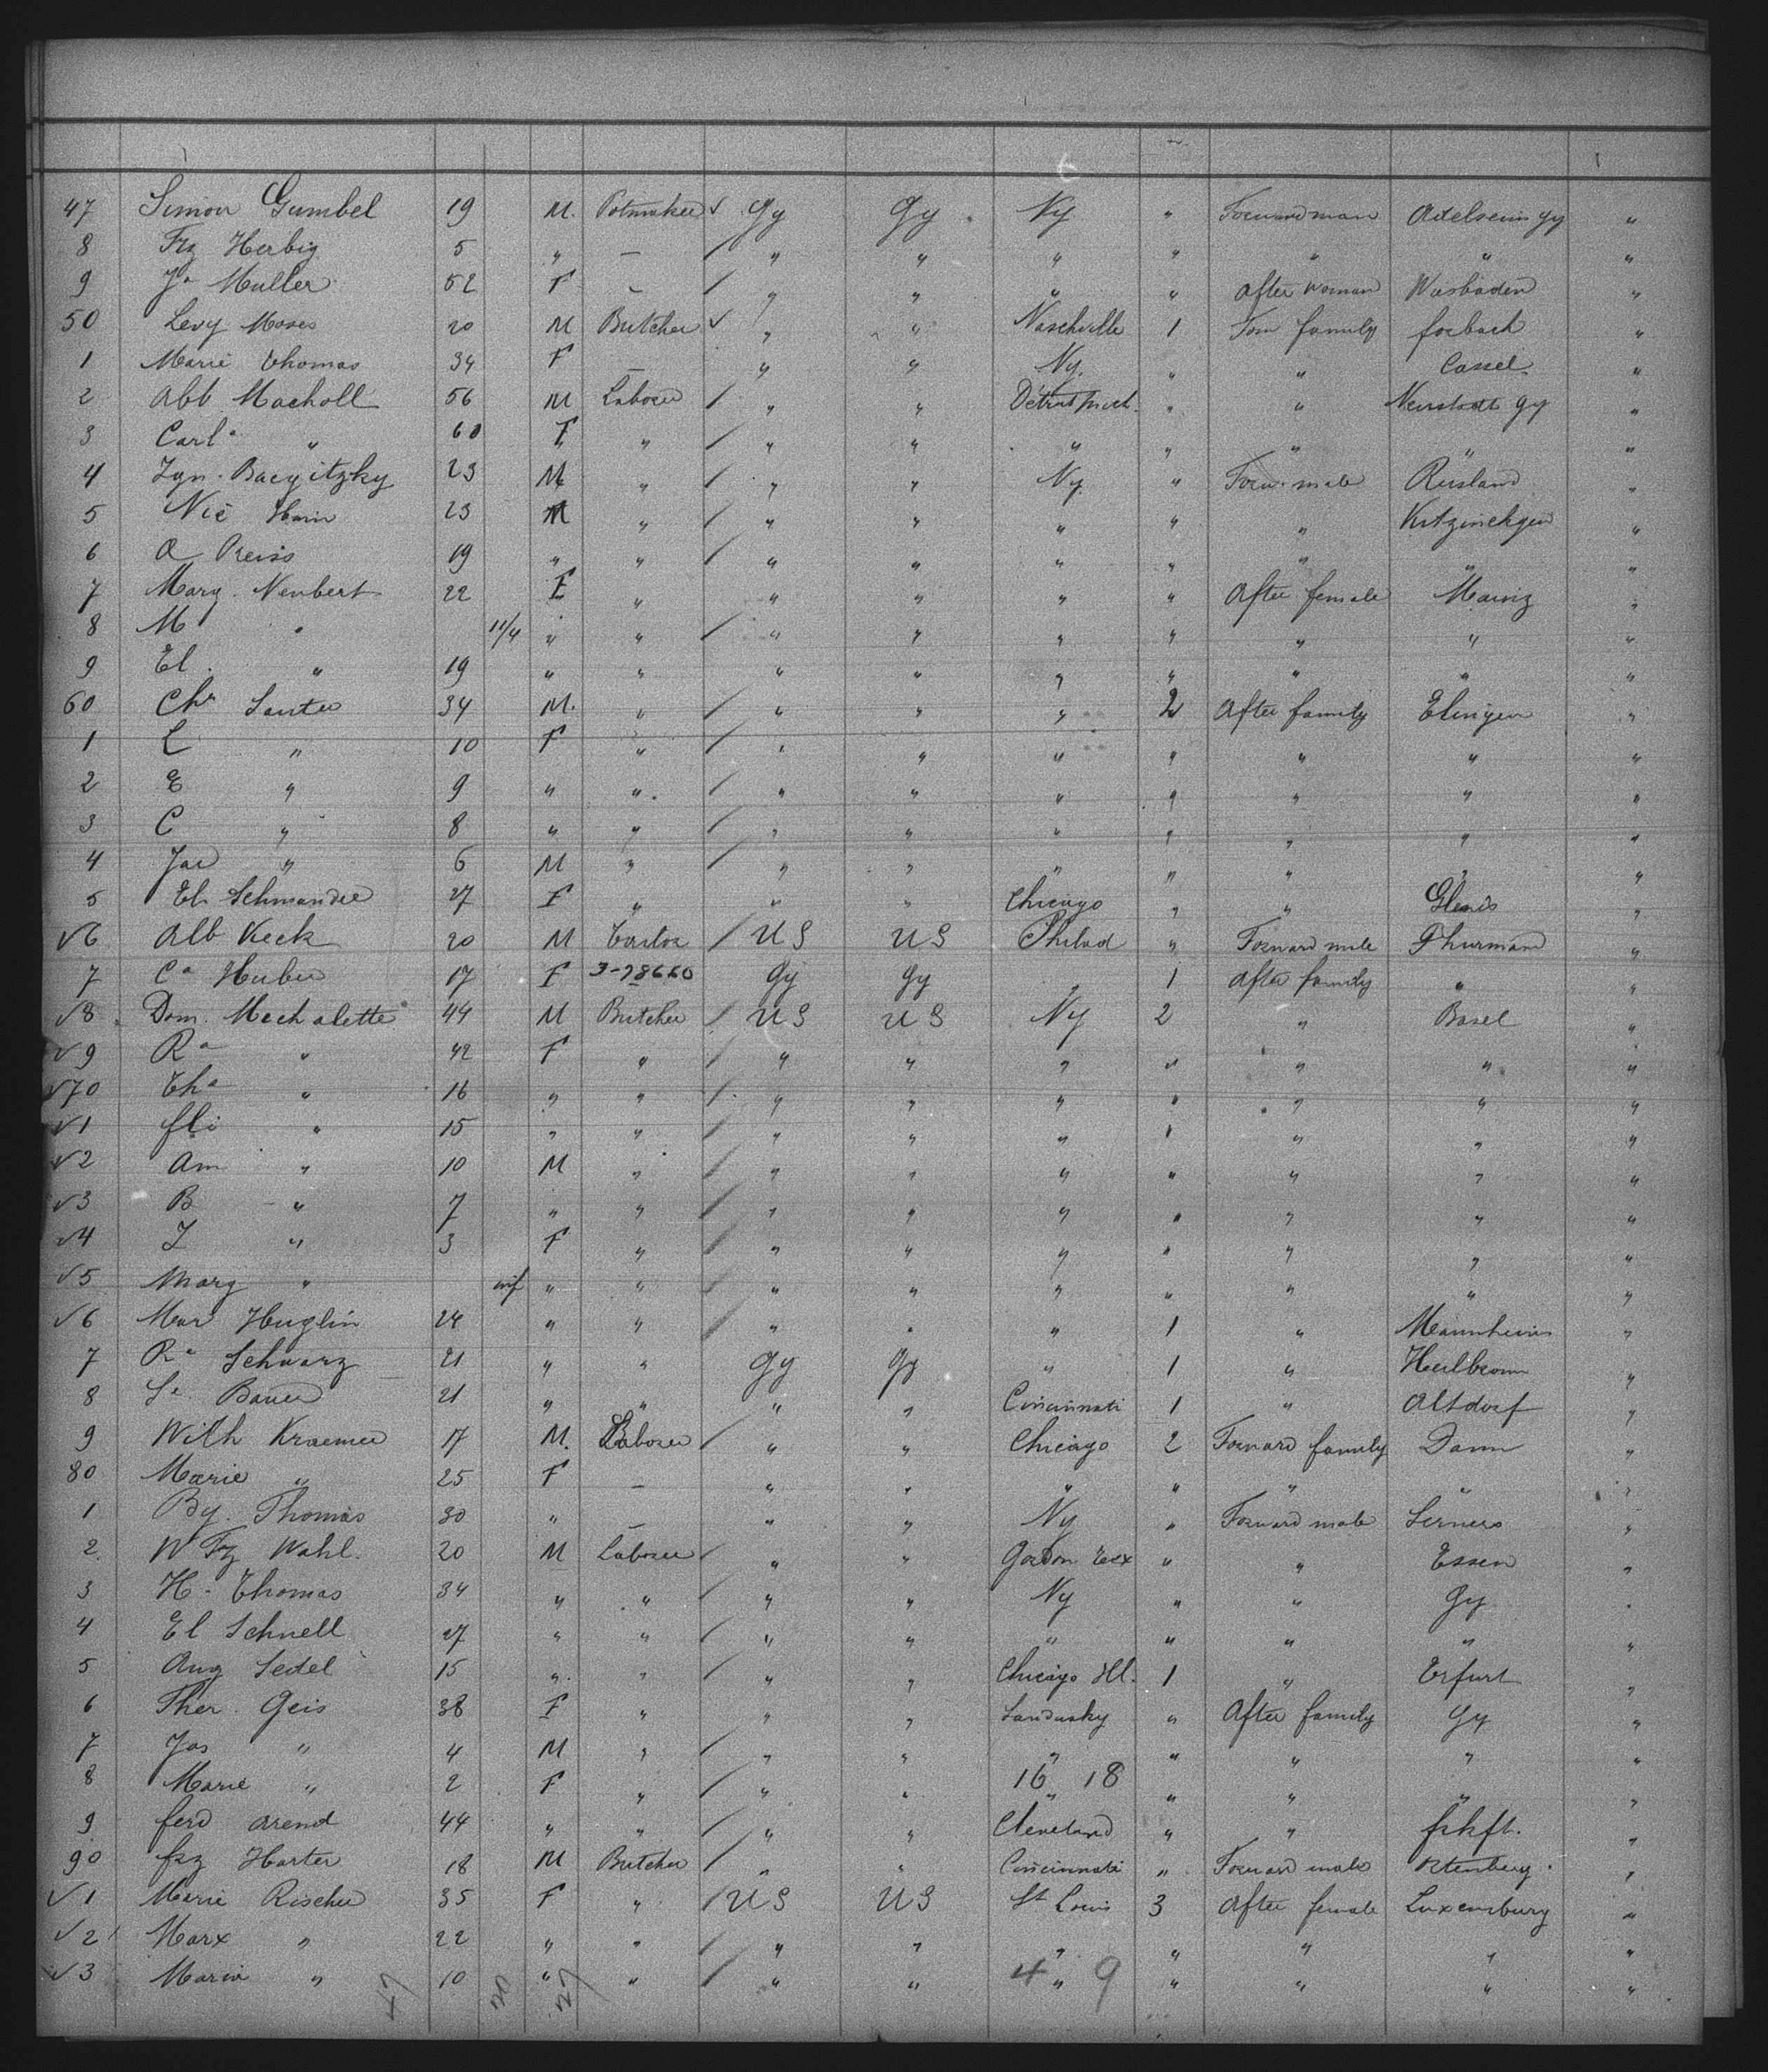 47 Simon Gumbel 19 M. Potmaker ✓ Gy Gy Ny " Forward man Adelseim Gy "
8 Frz Herbig 5 " — / " " " " " " "
9 Ja Muller 52 F — / " " " " After woman Wiesbaden "
50 Levy Moses 20 M Butcher ✓ " " Naschville 1 Forw family forbach "
1 Marie Thomas 34 F — " " Ny. " " Cassel "
2 Abb Macholl 56 M Laborer / " " Detroit Mich. " " Neustadt Gy "
3 Carla " 60 F " / " " " " " " "
4 Ign. Bacyitzky 23 M " / " " Ny. " Forw. male Rusland "
5 Nic Horn 23 M " / " " " " " Kitzinchgen "
6 A Preiss 19 " " / " " " " " " "
7 Marg. Neubert 22 F " " " " " After female Mainz "
8 M " 11/4 " " / " " " " " " "
9 El. " 19 " " " " " " " " "
60 Chr Sauter 34 M. " / " " " 2 After family Elingen "
1 L " 10 F " / " " " " " " "
2 E " 9 " " / " " " " " " "
3 C " 8 " " / " " " " " " "
4 Jac " 6 M " / " " " " " " "
5 El. Schmander 27 F " " " Chicago " "
✓6 Alb Keck 20 M / US US Philad " Forward male Thurmann "
7 Ca Huber 17 F 3-78660 Gy Gy " 1 After family " "
✓8 Dom. Mechalette 44 M Butcher / US US Ny 2 " Basel "
✓9 Ra " 42 F " / " " " " " " "
✓70 Tha " 16 " " / " " " " " " "
✓1 fli " 15 " " / " " " " " " "
✓2 Am " 10 M " / " " " " " " "
✓3 B " 7 " " / " " " " " " "
✓4 I " 3 F " / " " " " " " "
✓5 Marg " inf " " / " " " " " " "
✓6 Mar Huglin 24 " " / " " " 1 " Mannheim "
7 Ra Schwarz 21 " " Gy Gy " 1 " Heilbronn "
8 Bauer 21 " " " " Cincinnati 1 " Altdorf "
9 Wilh Kraemer 17 M. Laborer / " " Chicago 2 Forward family Dann "
80 Marie " 25 F — " " " " " " "
1 By. Thomas 30 " — " " Ny " Forward male "
2 W Frz Wahl. 20 M Laborer / " " Gordon Tex " " Essen "
3 H. Thomas 34 " " / " " Ny " " Gy "
4 El Schnell 27 " " / " " " " " " "
5 Aug Sedel 15 " " / " " Chicago Ill. 1 " Erfurt "
6 Ther. Geis 38 F " " " Sandusky " After family Gy "
7 Jos " 4 M " / " " " " " " "
8 Marie " 2 F " / " " 16 18 " " " " "
9 ferd Arend 44 " " / " " Cleveland " " frkft. "
90 frz Harter 18 M Butcher / " " Cincinnati " Forward male Ortenberg. "
✓1 Marie Rischer 35 F " / US US St Louis 3 After female Luxemburg "
✓2 Marx " 22 " " / " " " " " " "
✓3 Maria " 10 " " / " " 4 " 9 " " " "